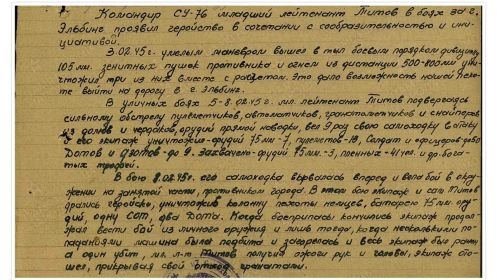 Командир СУ-76 младший лейтенант Титов в боях за г.
Эльбинг проявил геройство в сочетании с сообразительностью и ини-
циативой.
3.02.45г. умелым маневром вышел в тыл боевым порядком дивизиону
105 мм. зенитных пушек противника и огнем из дистанции 500-800м уни-
чтожил три из них вместе с расчетом. Это дало возможность нашей пехо-
те выйти на дорогу в г. Эльбинг.
В уличных боях 5-8.02.45г. мл. лейтенант Титов подвергаясь
сильному обстрелу пулеметчиков, автоматчиков, гранатометчиков и снайперов
из домов и чердаков, орудий прямой наводки, вел 9 раз свою самоходку в атаку
его экипаж уничтожил-орудий 75мм-7, пулеметов-18, Солдат и офицеров-до
Дотов и дзотов-до 9. Захвачено-орудий 75мм-3, пленных-41чел. и др. бога-
тых трофей.
В бою 8.02.45г. его самоходка вырвалась вперед и вела бой в окру-
жении на занятой части, противником города. В этом бою экипаж и сам Титов
дрались геройски, уничтожив колонну пехоты немцев, батарею 75мм. ору-
дий, одну два Дота. Когда боеприпасы кончились экипаж продол-
жал вести бой из личного оружия и лишь тогда, когда несколькими по-
паданиями машина была подбита и загорелась и весь экипаж был ранен
а один убит, мл. л-т Титов получил ожоги рук и головы, экипаж ото-
шел, прикрывая свой отход гранатами.